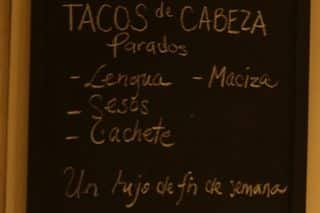 TACOS de CABEZA
Parados
- Lengua - Maciza
- Sesos
- Cachete
Un lujo de fin de semana